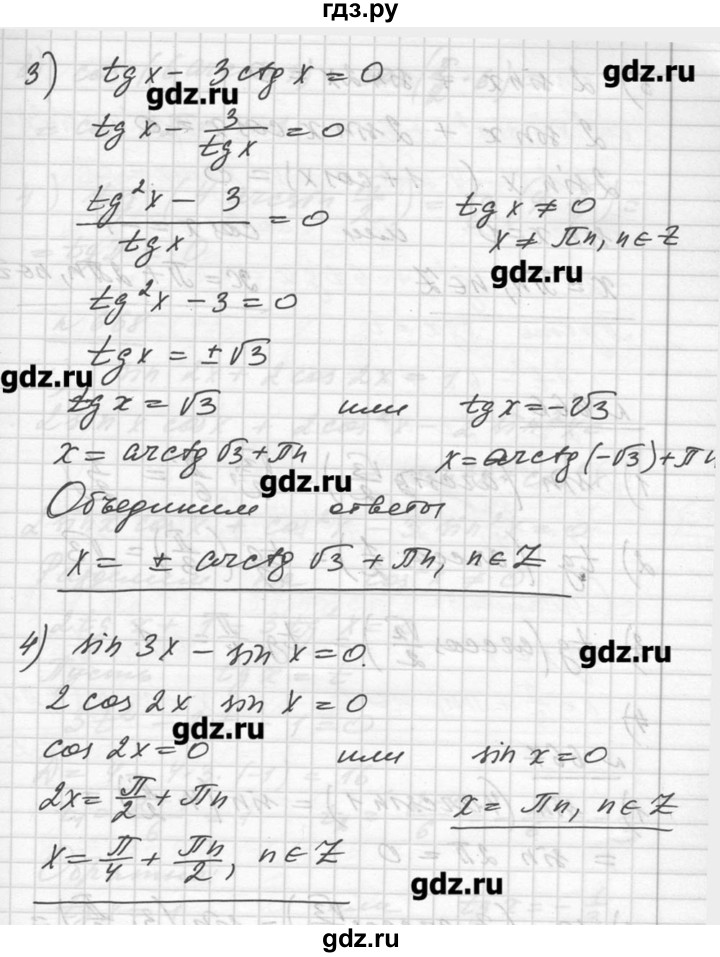 гдз.ру
3) tg x - 3 ctg x = 0
gdz.ru
gdz.ru
tg x - 3/tg x = 0
(tg²x - 3)/tg x = 0
tg x ≠ 0
x ≠ πn, n ∈ Z
gdz.ru
tg²x - 3 = 0
tg x = ±√3
gdz.ru
tg x = √3 или tg x = -√3
x = arctg √3 + πn x = arctg(-√3) + πn
gdz.ru
Объединим ответы
x = ± arctg √3 + πn, n ∈ Z
4) sin 3x - sin x = 0.
gdz.ru
2 cos 2x sin x = 0
gdz.ru
cos 2x = 0 или sin x = 0
2x = π/2 + πn
x = πn, n ∈ Z
x = π/4 + πn/2, n ∈ Z
gdz.ru
gdz.ru